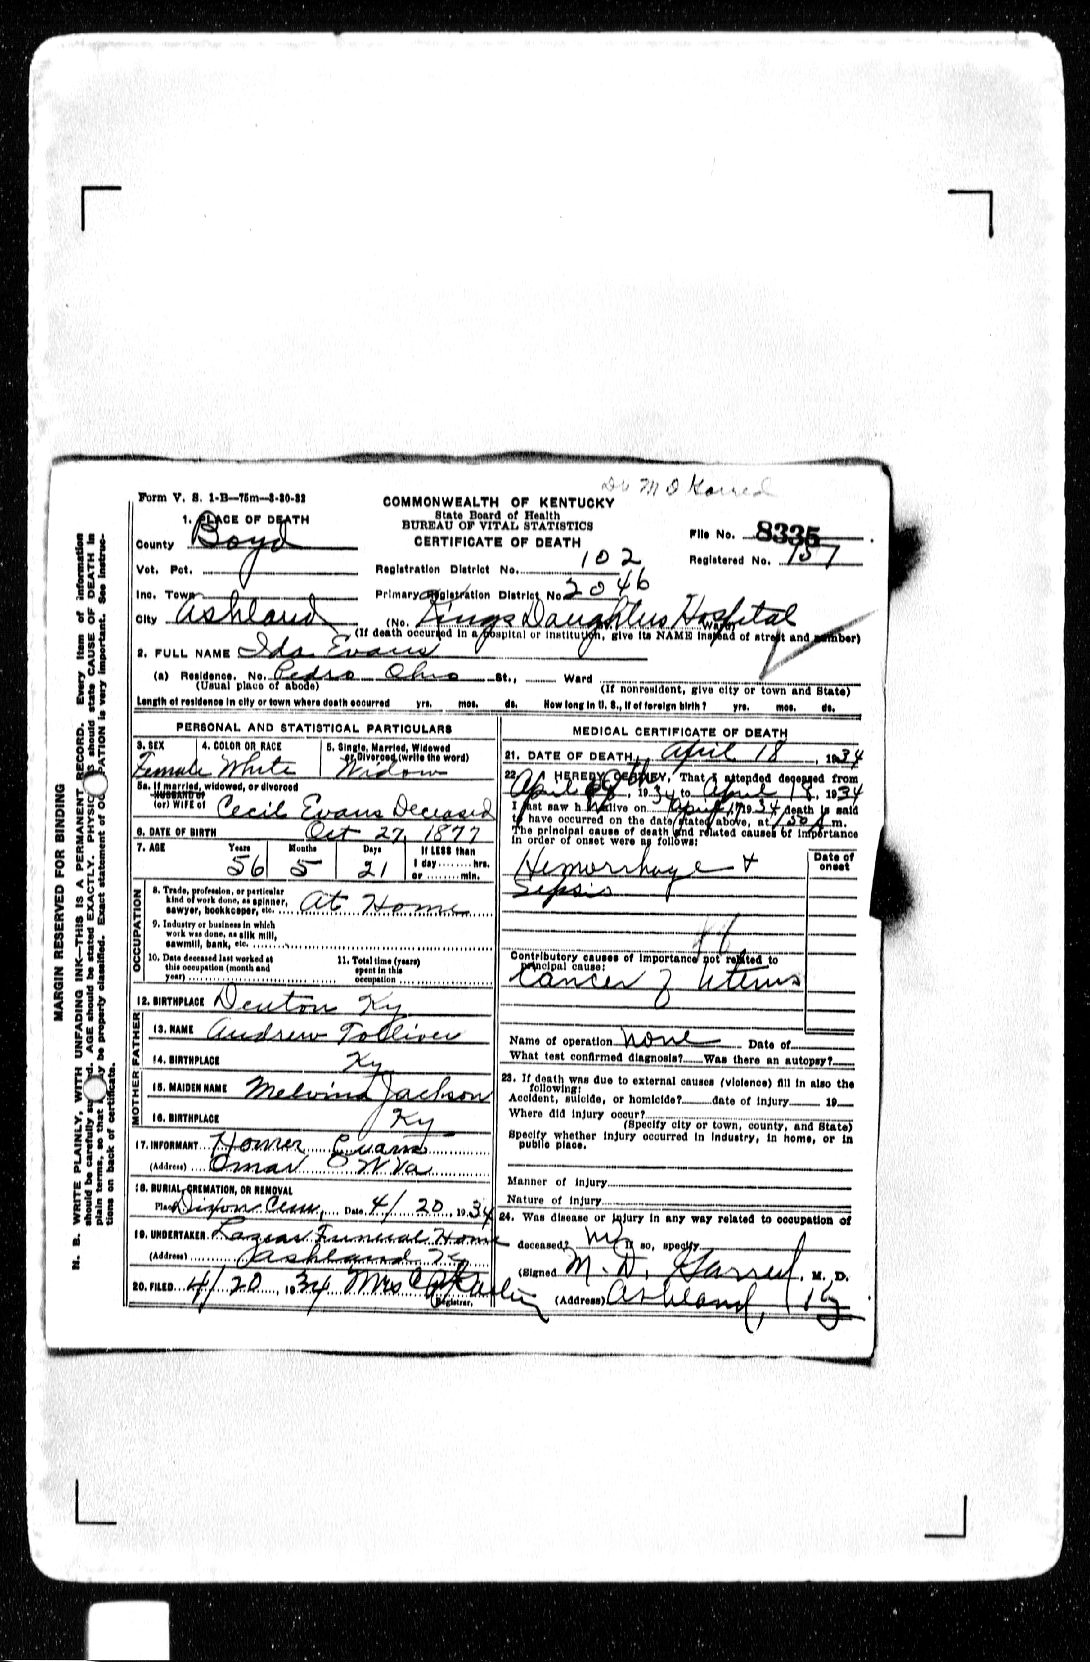 Form V. S. 1-B—75m—8-30-32
COMMONWEALTH OF KENTUCKY
State Board of Health
BUREAU OF VITAL STATISTICS
CERTIFICATE OF DEATH
File No. 8335
Registered No. 157
1. PLACE OF DEATH
County Boyd
Vot. Pct.
Registration District No. 102
Inc. Town
Primary Registration District No. 2046
City Ashland
(No. Kings Daughters Hospital Ward)
(If death occurred in a hospital or institution, give its NAME instead of street and number)
2. FULL NAME Ida Evans
(a) Residence. No. Pedro Ohio St., Ward
(Usual place of abode)
(If nonresident, give city or town and State)
Length of residence in city or town where death occurred yrs. mos. ds. How long in U. S., if of foreign birth? yrs. mos. ds.
PERSONAL AND STATISTICAL PARTICULARS
3. SEX
Female
4. COLOR OR RACE
White
5. Single, Married, Widowed
or Divorced (write the word)
Widow
5a. If married, widowed, or divorced
HUSBAND of
(or) WIFE of Cecil Evans Deceased
6. DATE OF BIRTH Oct 27, 1877
7. AGE Years Months Days If LESS than
56 5 21 1 day hrs.
or min.
OCCUPATION
8. Trade, profession, or particular
kind of work done, as spinner,
sawyer, bookkeeper, etc. At Home
9. Industry or business in which
work was done, as silk mill,
sawmill, bank, etc.
10. Date deceased last worked at
this occupation (month and
year)
11. Total time (years)
spent in this
occupation
12. BIRTHPLACE Denton Ky
FATHER
13. NAME Andrew Tolliver
14. BIRTHPLACE Ky
MOTHER
15. MAIDEN NAME Melvina Jackson
16. BIRTHPLACE Ky
17. INFORMANT Homer Evans
(Address) Omar W Va
18. BURIAL, CREMATION, OR REMOVAL
Place Dixon Cem, Date 4/20, 1934
19. UNDERTAKER Lazear Funeral Home
(Address) Ashland Ky
20. FILED 4/20, 1934 Mrs
Registrar.
MEDICAL CERTIFICATE OF DEATH
21. DATE OF DEATH, April 18, 1934
22. I HEREBY CERTIFY, That I attended deceased from
April, 1934 to April 18, 1934
I last saw h alive on April 17 1934 death is said
to have occurred on the date stated above, at 1:30 A m.
The principal cause of death and related causes of importance
in order of onset were as follows:
Date of
onset
Hemorrhage +
Sepsis
Contributory causes of importance not related to
principal cause:
Cancer of Uterus
Name of operation None Date of
What test confirmed diagnosis? Was there an autopsy?
23. If death was due to external causes (violence) fill in also the
following:
Accident, suicide, or homicide? date of injury 19
Where did injury occur?
(Specify city or town, county, and State)
Specify whether injury occurred in industry, in home, or in
public place.
Manner of injury
Nature of injury
24. Was disease or injury in any way related to occupation of
deceased? No If so, specify
(Signed M. D. Garred, M. D.
(Address) Ashland, Ky
MARGIN RESERVED FOR BINDING
N. B. WRITE PLAINLY, WITH UNFADING INK—THIS IS A PERMANENT RECORD. Every item of information
should be carefully supplied. AGE should be stated EXACTLY. PHYSICIANS should state CAUSE OF DEATH in
plain terms, so that it may be properly classified. Exact statement of OCCUPATION is very important. See instruc-
tions on back of certificate.